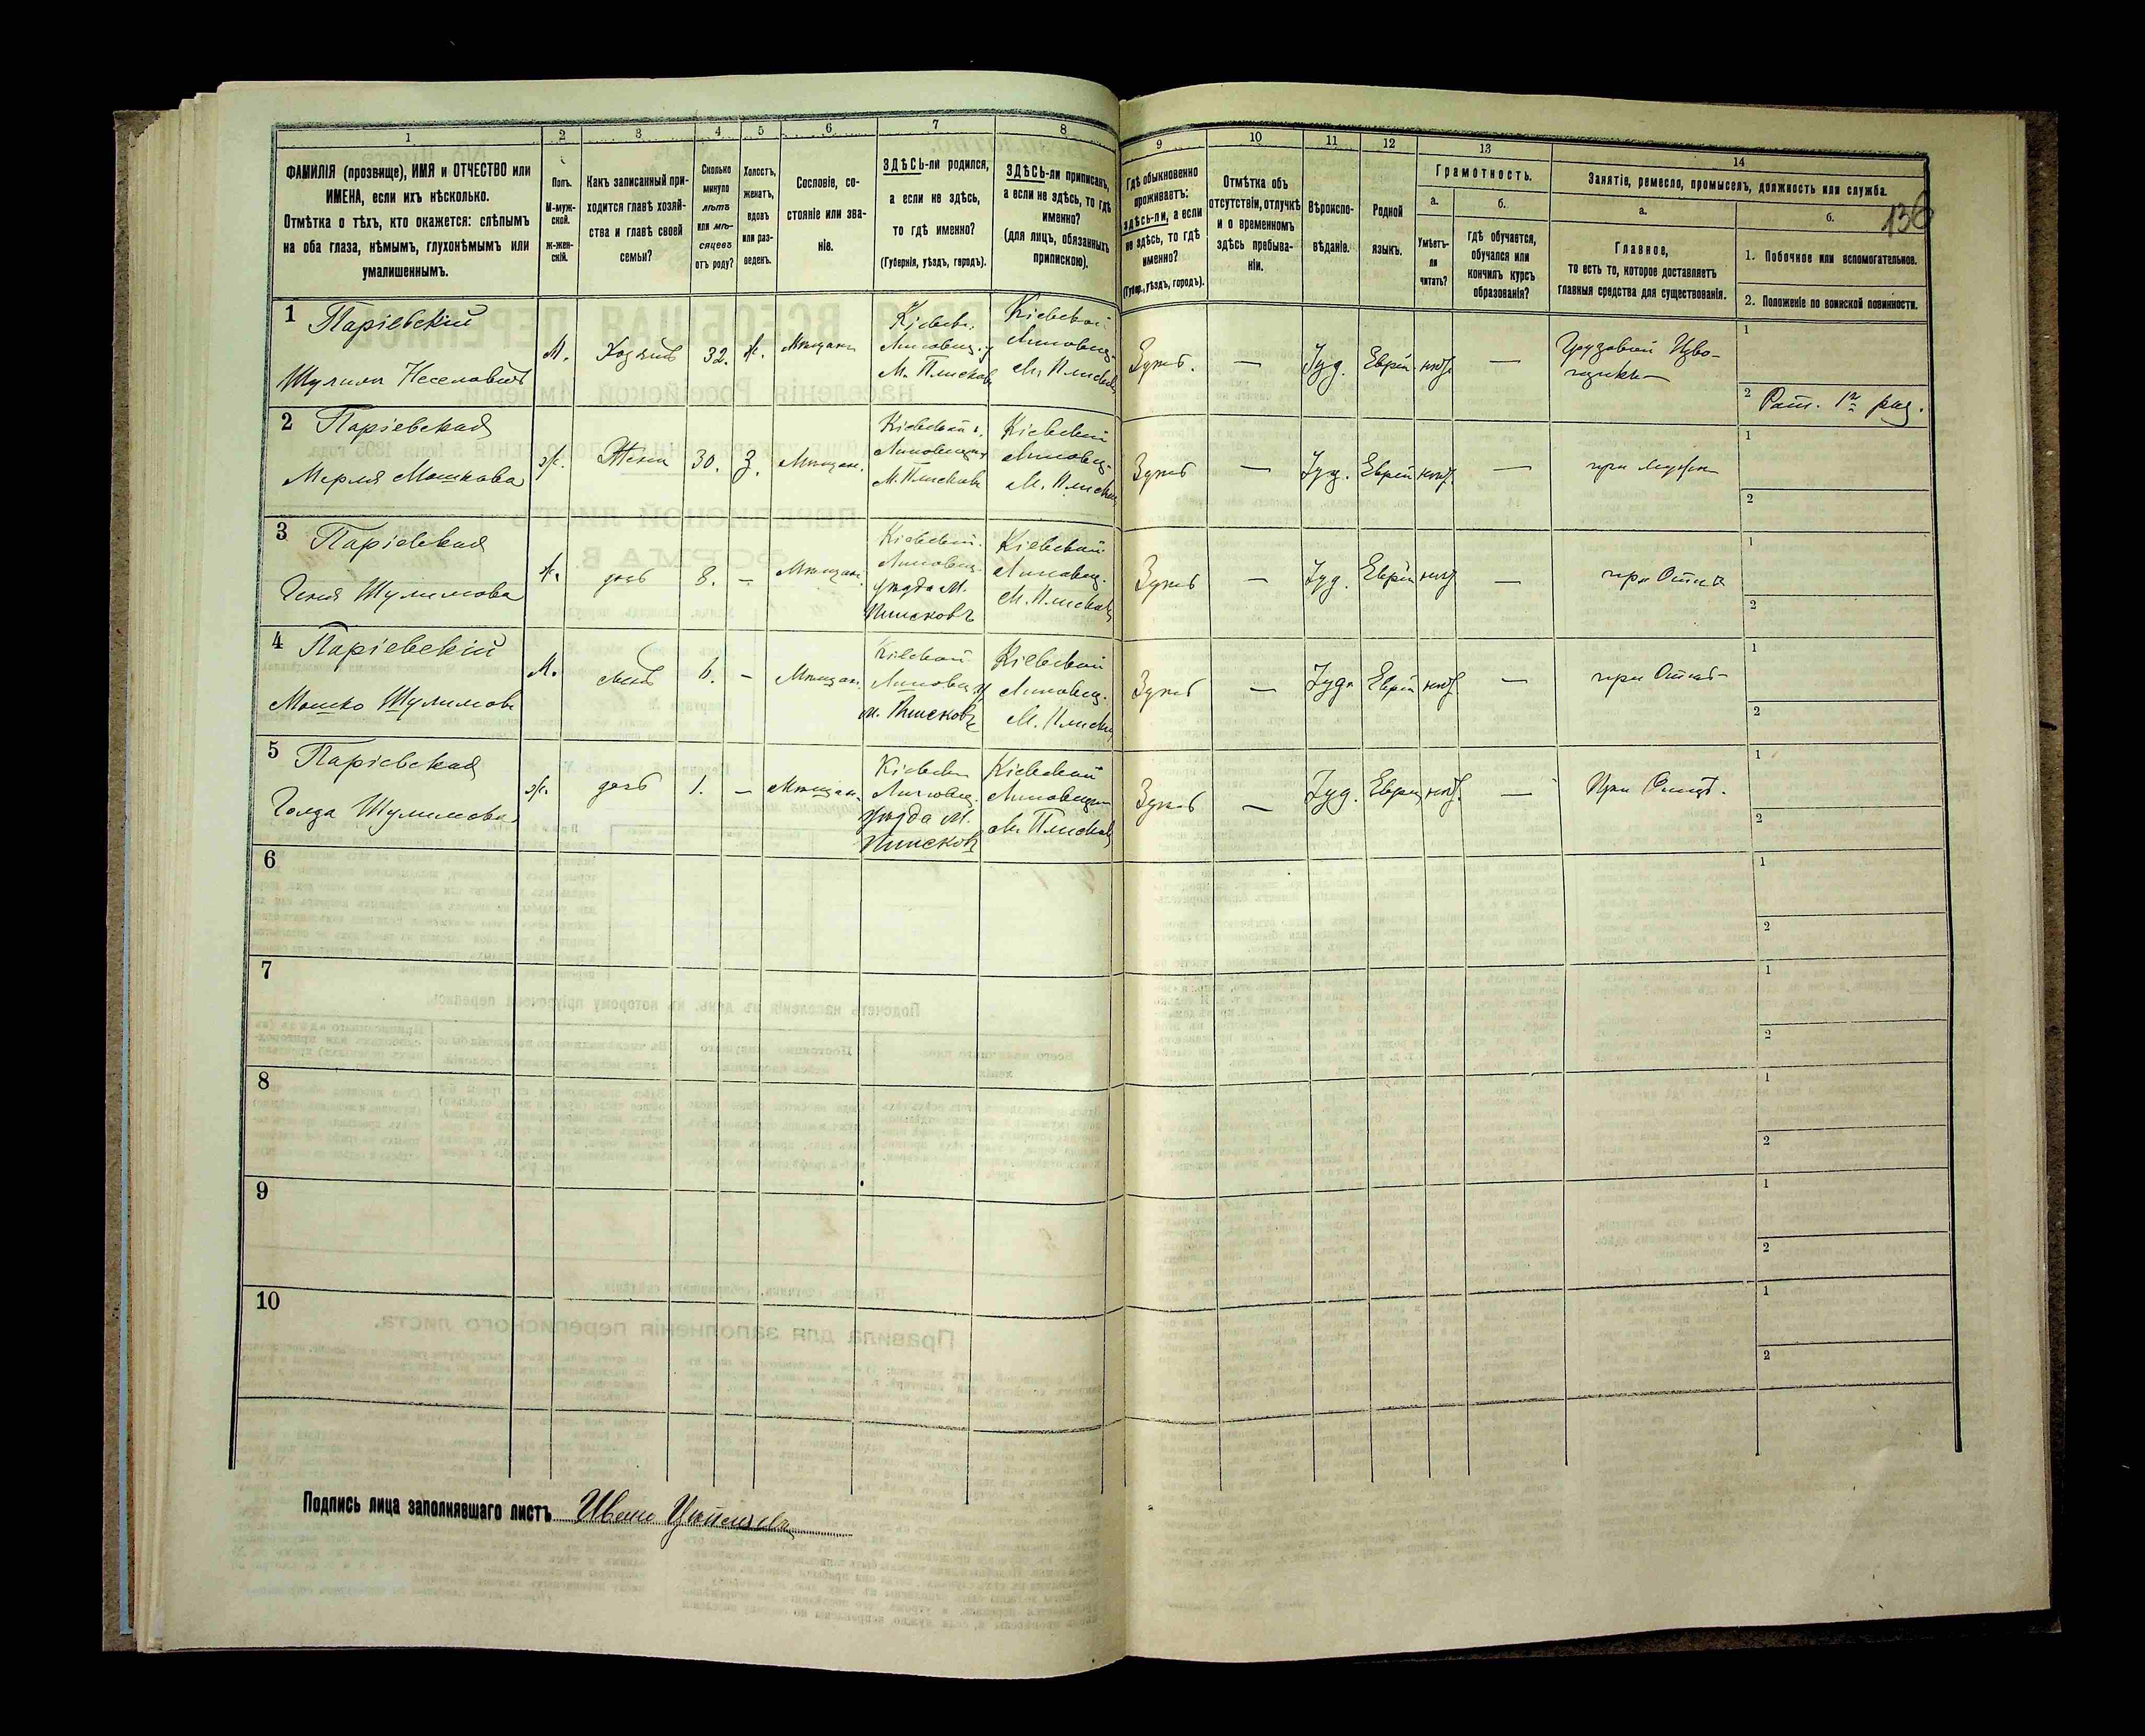 1
2
3
4
5
6
7
8
ФАМИЛІЯ (прозвище), ИМЯ и ОТЧЕСТВО или
ИМЕНА, если ихъ нѣсколько.
Отмѣтка о тѣхъ, кто окажется: слѣпымъ
на оба глаза, нѣмымъ, глухонѣмымъ или
умалишеннымъ.
Полъ.
М-муж-
ской.
Ж-жен-
скій.
Какъ записанный при-
ходится главѣ хозяй-
ства и главѣ своей
семьи?
Сколько
минуло
лѣтъ
или мѣ-
сяцевъ
отъ роду?
Холостъ,
женатъ,
вдовъ
или раз-
веденъ.
Сословіе, со-
стояніе или зва-
ніе.
ЗДѢСЬ-ли родился,
а если не здѣсь,
то гдѣ именно?
(Губернія, уѣздъ, городъ).
ЗДѢСЬ-ли приписанъ,
а если не здѣсь, то гдѣ
именно?
(для лицъ, обязанныхъ
припискою).
9
10
11
12
13
14
Гдѣ обыкновенно
проживаетъ:
здѣсь-ли, а если
не здѣсь, то гдѣ
именно?
(Губер., уѣздъ, городъ).
Отмѣтка объ
отсутствіи, отлучкѣ
и о временномъ
здѣсь пребыва-
ніи.
Вѣроиспо-
вѣданіе.
Родной
языкъ.
Грамотность.
а.
б.
Умѣетъ-
ли
читать?
гдѣ обучается,
обучался или
кончилъ курсъ
образованія?
Занятіе, ремесло, промыселъ, должность или служба.
а.
б.
136
Главное,
то есть то, которое доставляетъ
главныя средства для существованія.
1. Побочное или вспомогательное.
2. Положеніе по воинской повинности.
1 Паріевскій
Шулимъ
М. Хозяинъ 32. ж. Мѣщан.
Кіевск.
Липовец. у
М. Плисковъ
Кіевской
Липовец.
М. Плисковъ
Здѣсь. — Іуд. Еврей. нѣтъ —
Грузовой Изво-
щикъ
1
2 Рат. 1го раз.
2 Паріевская
Мерля Мошкова
ж. Жена 30. З. Мѣщан.
Кіевской г.
Липовецк.
М. Плисковъ
Кіевской
Липовец.
М. Плисков
Здѣсь — Іуд. Еврей нѣтъ. —
при мужѣ
1
2
3 Паріевская
Геня Шулимова
ж. дочь 8. — Мѣщан.
Кіевской.
Липовец.
уѣзда М.
Плисковъ
Кіевской
Липовец.
М. Плисковъ
Здѣсь — Іуд. Еврей нѣтъ —
при Отцѣ
1
2
4 Паріевскій
Мошко Шулимовъ
М. сынъ 6. — Мѣщан.
Кіевской
Липовец. у
м. Плисковъ
Кіевской
Липовец.
М. Плисков
Здѣсь — Іуд. Еврей нѣтъ. —
при Отцѣ
1
2
5 Паріевская
Голда Шулимова
ж. дочь 1. — Мѣщан.
Кіевск
Липовец.
уѣзда М.
Плисковъ
Кіевской
Липовецк
М. Плисковъ
Здѣсь — Іуд. Еврей нѣтъ. —
При Отцѣ.
1
2
6
1
2
7
1
2
8
1
2
9
1
2
10
1
2
Подпись лица заполнявшаго листъ